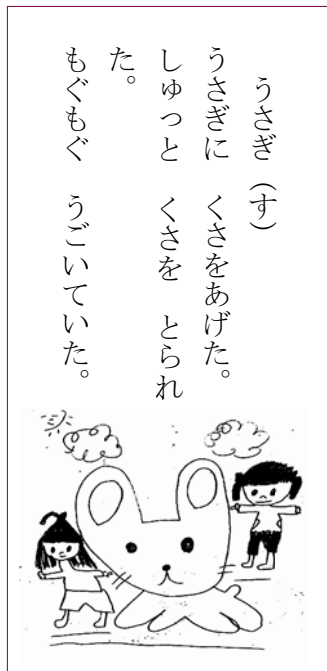 うさぎ（す）
うさぎに　くさをあげた。
しゅっと　くさを　とられ
た。
もぐもぐ　うごいていた。